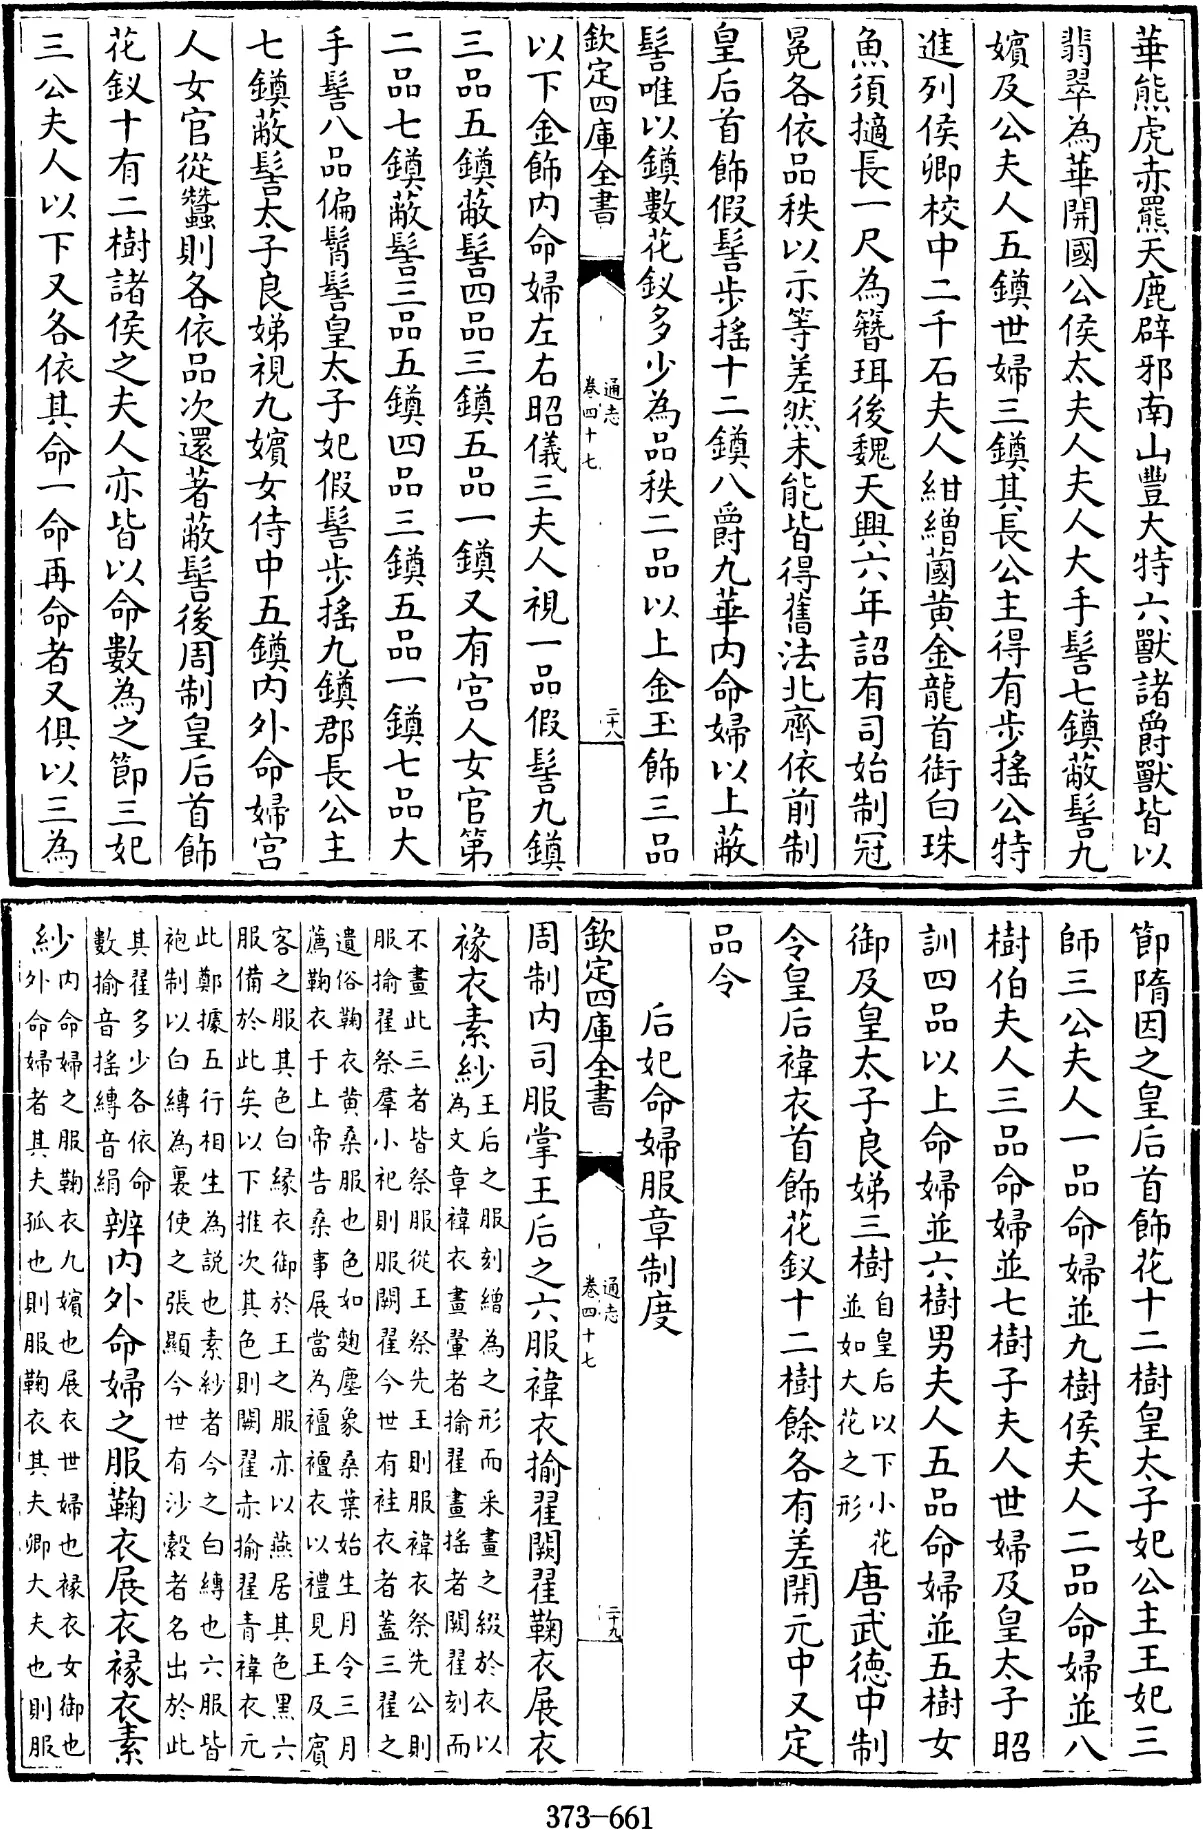 華熊虎赤羆天鹿辟邪南山豐大特六獸諸爵獸皆以
翡翠為華開國公侯太夫人夫人大手髻七鐏蔽髻九
嬪及公夫人五鐏世婦三鐏其長公主得有步搖公特
進列侯卿校中二千石夫人紺繒蔮黄金龍首銜白珠
魚須擿長一尺為簪珥後魏天興六年詔有司始制冠
冕各依品秩以示等差然未能皆得舊法北齊依前制
皇后首飾假髻步搖十二鐏八爵九華内命婦以上蔽
髻唯以鐏數花釵多少為品秩二品以上金玉飾三品
欽定四庫全書
通志
卷四十七
二十八
以下金飾内命婦左右昭儀三夫人視一品假髻九鐏
三品五鐏蔽髻四品三鐏五品一鐏又有宫人女官第
二品七鐏蔽髻三品五鐏四品三鐏五品一鐏七品大
手髻八品偏髾髻皇太子妃假髻步搖九鐏郡長公主
七鐏蔽髻太子良娣視九嬪女侍中五鐏内外命婦宫
人女官從蠶則各依品次還著蔽髻後周制皇后首飾
花釵十有二樹諸侯之夫人亦皆以命數為之節三妃
三公夫人以下又各依其命一命再命者又俱以三為
節隋因之皇后首飾花十二樹皇太子妃公主王妃三
師三公夫人一品命婦並九樹侯夫人二品命婦並八
樹伯夫人三品命婦並七樹子夫人世婦及皇太子昭
訓四品以上命婦並六樹男夫人五品命婦並五樹女
御及皇太子良娣三樹自皇后以下小花
並如大花之形唐武德中制
令皇后褘衣首飾花釵十二樹餘各有差開元中又定
品令
后妃命婦服章制度
欽定四庫全書
通志
卷四十七
二十九
周制内司服掌王后之六服褘衣揄翟闕翟鞠衣展衣
褖衣素紗王后之服刻繒為之形而采畫之綴於衣以
為文章褘衣畫翬者揄翟畫搖者闕翟刻而
不畫此三者皆祭服從王祭先王則服褘衣祭先公則
服揄翟祭羣小祀則服闕翟今世有袿衣者蓋三翟之
遺俗鞠衣黄桑服也色如麴塵象桑葉始生月令三月
薦鞠衣于上帝告桑事展當為襢襢衣以禮見王及賓
客之服其色白緣衣御於王之服亦以燕居其色黑六
服備於此矣以下推次其色則闕翟赤揄翟青褘衣元
此鄭據五行相生為説也素紗者今之白縳也六服皆
袍制以白縳為裏使之張顯今世有沙縠者名出於此
其翟多少各依命
數揄音搖縳音絹辨内外命婦之服鞠衣展衣褖衣素
紗内命婦之服鞠衣九嬪也展衣世婦也褖衣女御也
外命婦者其夫孤也則服鞠衣其夫卿大夫也則服
373-661